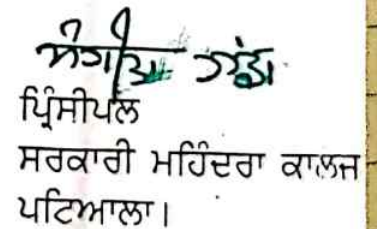 ਪ੍ਰਿੰਸੀਪਲ
ਸਰਕਾਰੀ ਮਹਿੰਦਰਾ ਕਾਲਜ
ਪਟਿਆਲਾ।